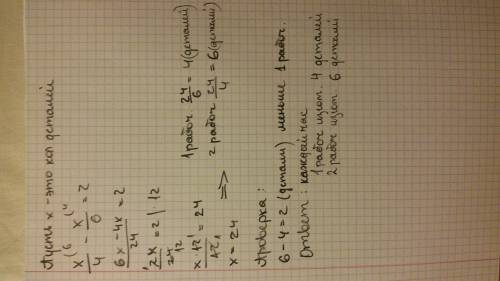 Пусть x - это кол деталей
x(6/4 - x(4/6 = 2
6x - 4x/24 = 2
2x/24 = 2 | · 12
x · 12/12 = 24
x = 24
=>
1 рабоч 24/6 = 4 (деталей)
2 рабоч 24/4 = 6 (детали)
Проверка:
6 - 4 = 2 (детали) меньше 1 рабоч.
Ответ: каждый час
1 рабоч изгот. 4 деталей
2 рабоч изгот 6 деталей